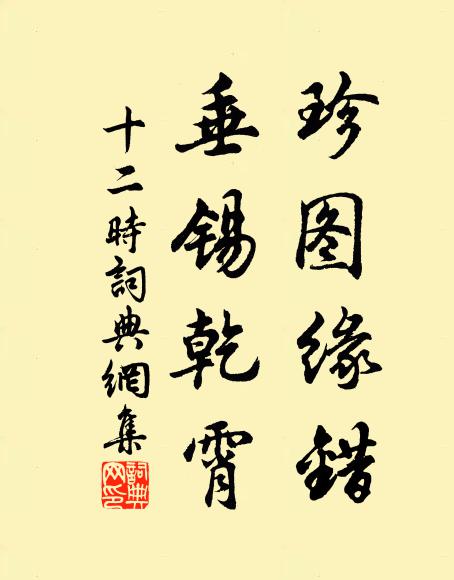 珍图缘錯
垂锡乾霄
十二時詞典網集
詞典网印